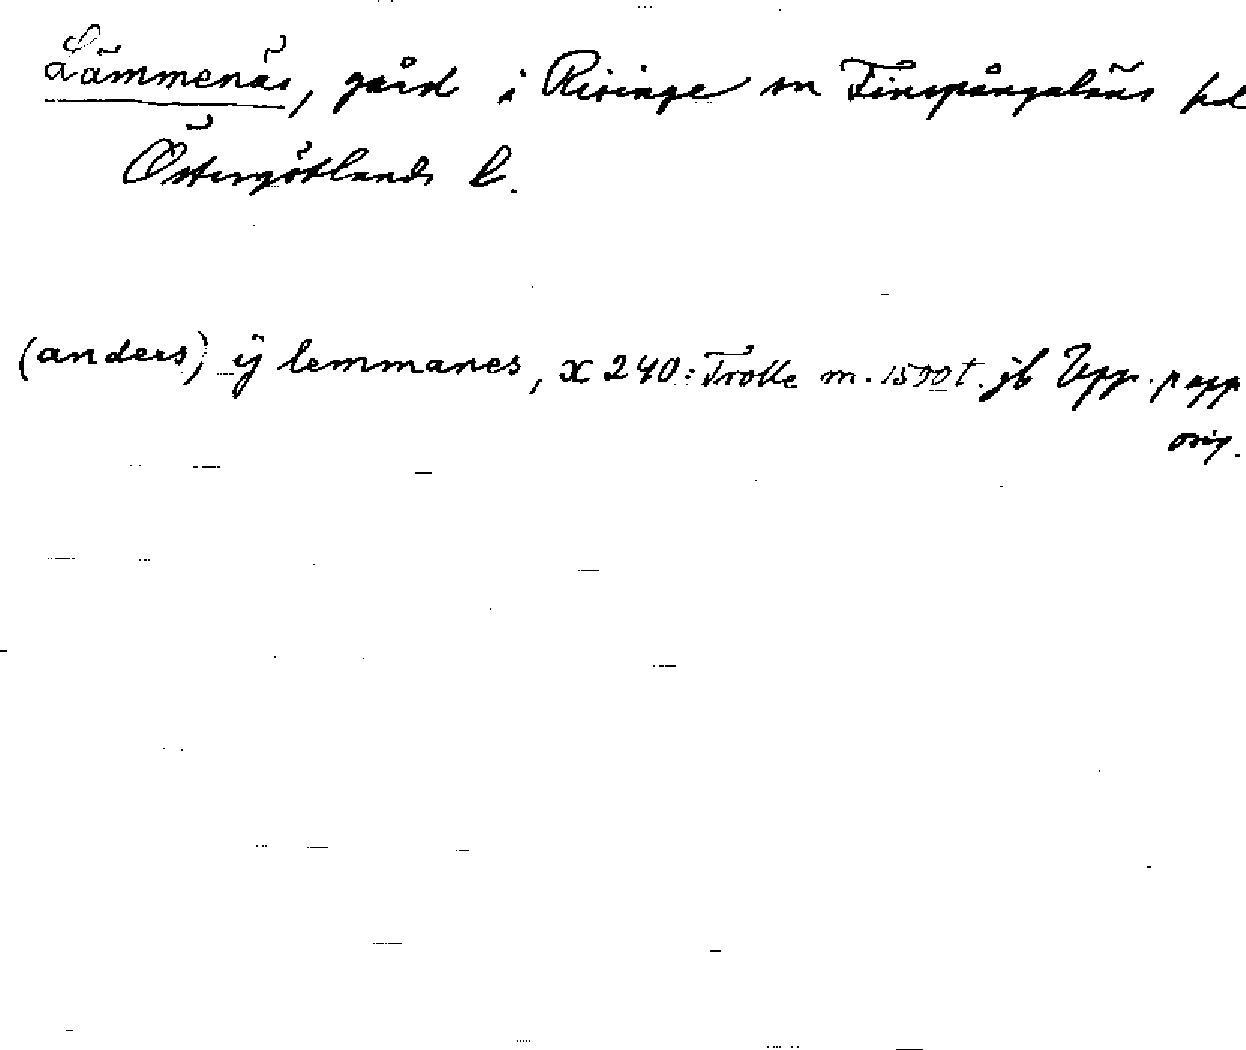 Lämmenäs, gård i Risinge sn Finspångaläns hd
Östergötlands l.
(anders) ÿ lemmanes, x 240: Trolle m. 1590t. jb Upp. papp
orig.